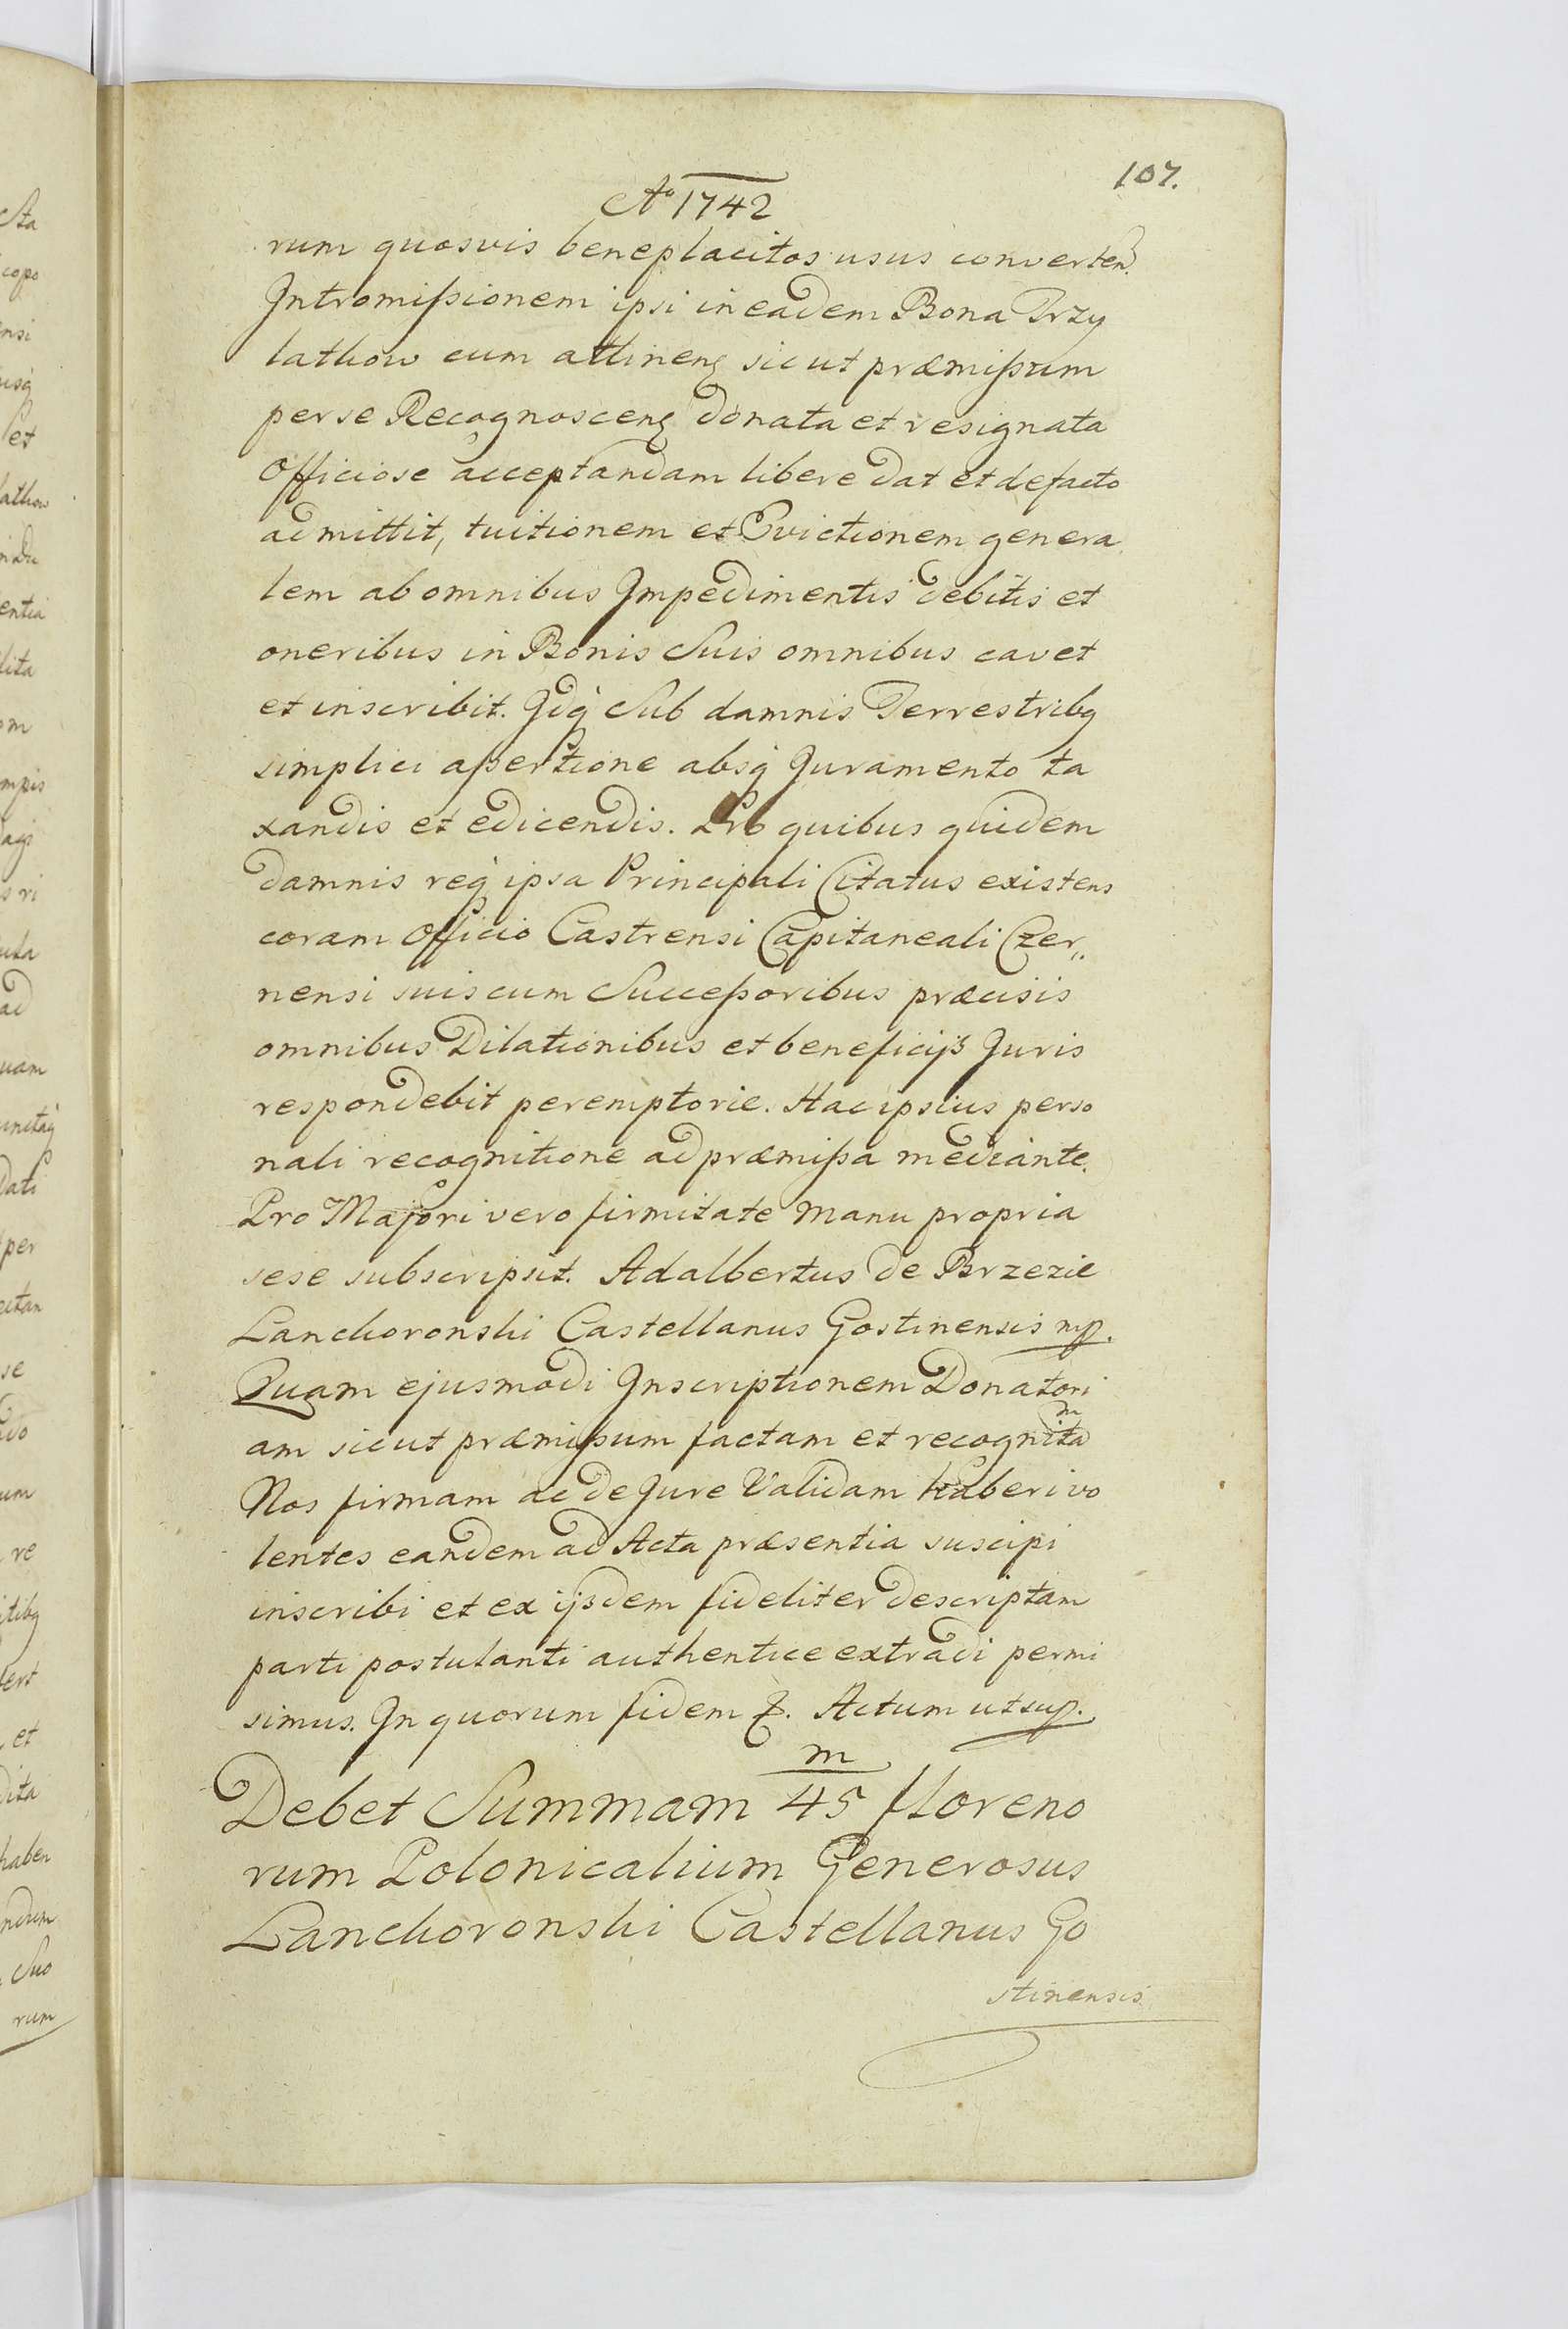 107.
Aᵒ 1742
rum quosvis beneplacitos usus converten.
Intromißionem ipsi in eadem Bona Przy
lathow cum attinenꝫ sicut præmißum
per se Recognoscenꝫ donata et resignata
Officiose acceptandam libere dat et de facto
admittit, tuitionem et Evictionem genera
lem ab omnibus Impedimentis debitis et
oneribus in Bonis Suis omnibus cavet
et inscribit. Idq̀ Sub damnis Terrestribꝯ
simplici aßertione absq̀ Juramento ta
xandis et edicendis. Pro quibus quidem
damnis req̀ ipsa Principali Citatus existens
coram Officio Castrensi Capitaneali Czer„
nensi suis cum Succeßoribus præcisis
omnibus Dilationibus et beneficijs Juris
respondebit peremptorie. Hac ipsius perso
nali recognitione ad præmißa mediante.
Pro Majori vero firmitate manu propria
sese subscripsit. Adalbertus de Brzezie
Lanckoronski Castellanus Gostinensis mp.
Quam ejusmodi Inscriptionem Donatori
am sicut præmißum factam et recognitaᵐ
Nos firmam ac de Jure Validam haberi vo
lentes eandem ad Acta præsentia suscipi
inscribi et ex ijsdem fideliter descriptam
parti postulanti authentice extradi permi
simus. In quorum fidem &. Actum ut sup.
m
Debet Summam 45 floreno
rum Polonicalium Generosus
Lanckoronski Castellanus Go
stinensis